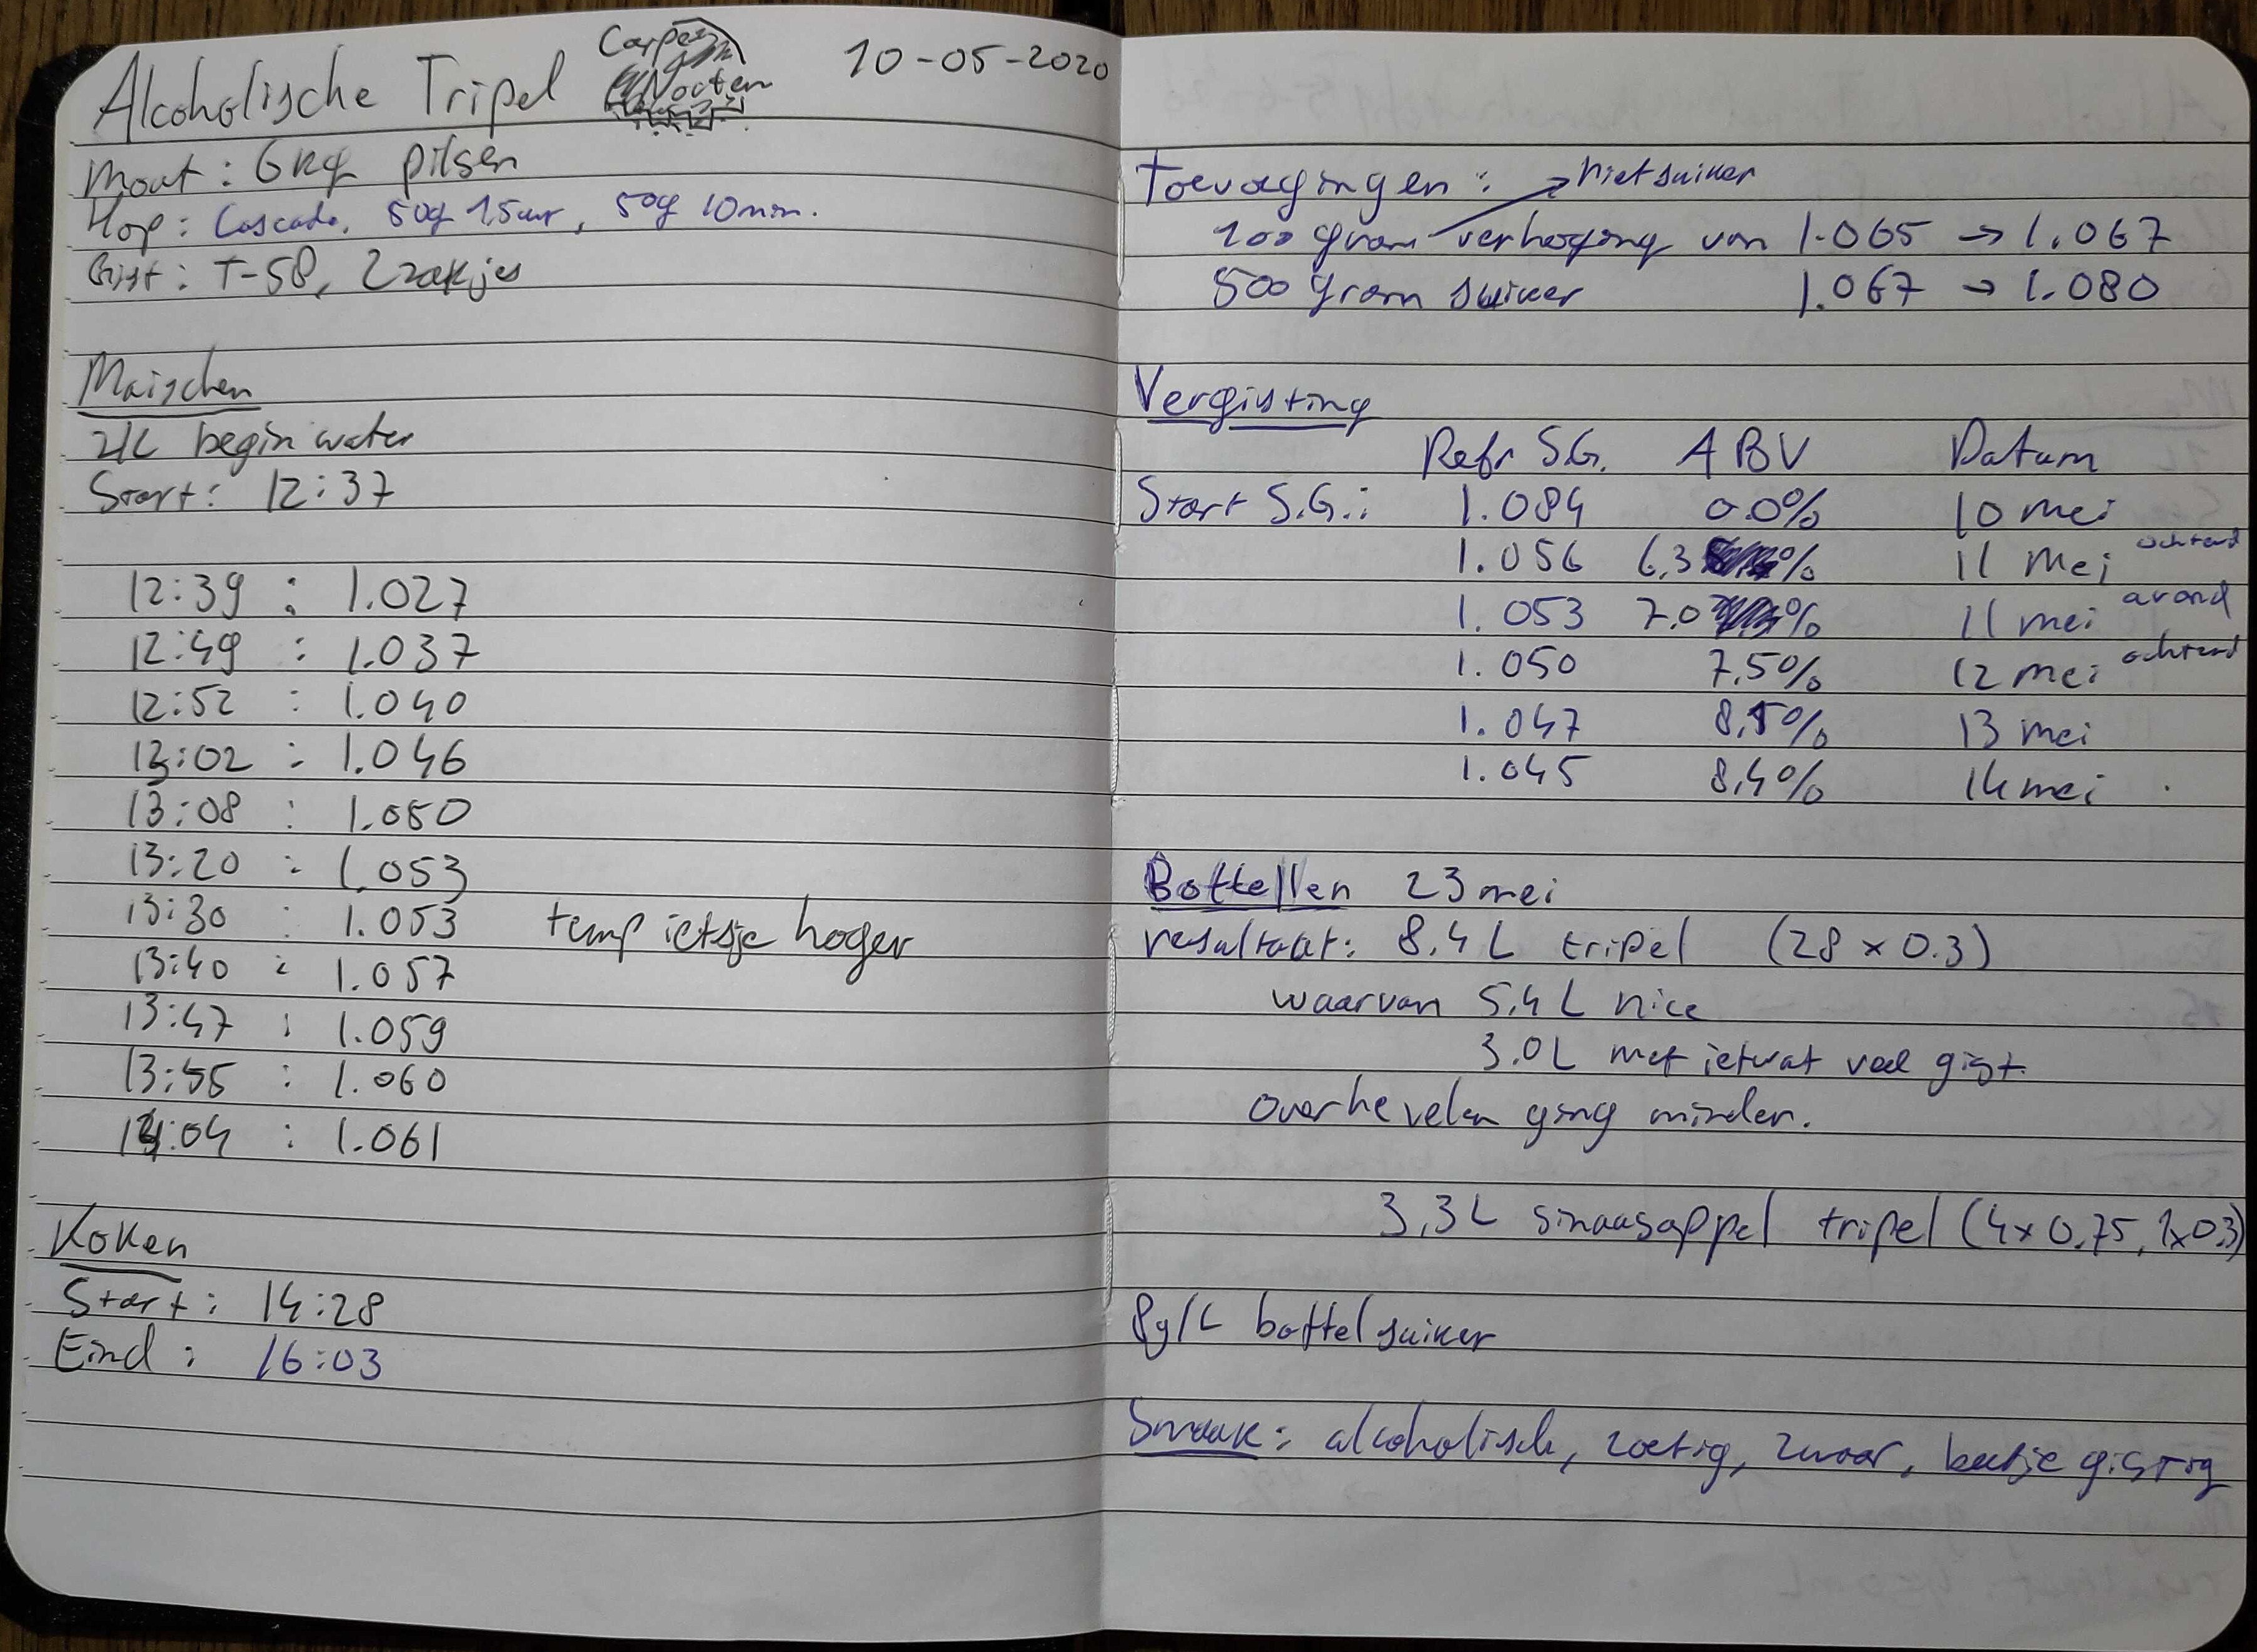 Alcoholische Tripel
Carpe
Nocten
10-05-2020
Mout: 6kg pilsen
Hop: Cascade, 50g 1.5uur, 50g 10min.
Gist: T-58, 2 zakjes
Maischen
21L begin water
Start: 12:37
12:39 : 1.027
12:49 : 1.037
12:52 : 1.040
13:02 : 1.046
13:08 : 1.050
13:20 : 1.053
13:30 : 1.053 temp ietsje hoger
13:40 : 1.057
13:47 : 1.059
13:55 : 1.060
14:04 : 1.061
Koken
Start: 14:28
Eind: 16:03
Toevoegingen: → rietsuiker
100 gram verhoging van 1.065 → 1.067
500 gram suiker 1.067 → 1.080
Vergisting
Refr S.G. ABV Datum
Start S.G.: 1.084 0.0% 10 mei
1.056 6,3% 11 mei ochtend
1.053 7.0% 11 mei avond
1.050 7,5% 12 mei ochtend
1.047 8,1% 13 mei
1.045 8,4% 14 mei
Bottellen 23 mei
resultaat: 8,4 L tripel (28 x 0.3)
waarvan 5,4 L nice
3.0L met ietwat veel gist.
overhevelen ging minder.
3,3L sinaasappel tripel (4x0,75, 1x0.3)
8g/L bottelsuiker
Smaak: alcoholisch, zoetig, zwaar, beetje gistig